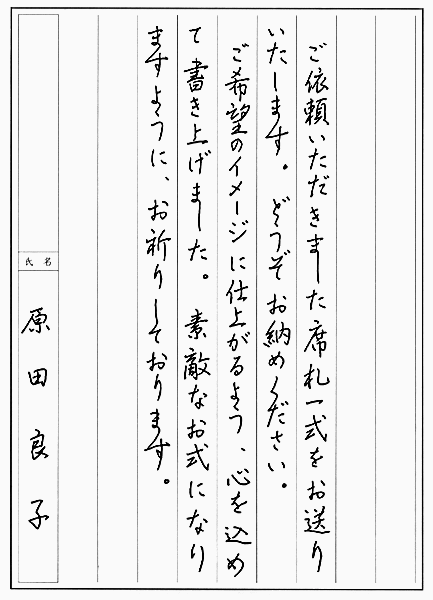 ご依頼いただきました席札一式をお送り
いたします。どうぞお納めください。
ご希望のイメージに仕上がるよう、心を込め
て書き上げました。素敵なお式になり
ますように、お祈りしております。
氏名
原田良子